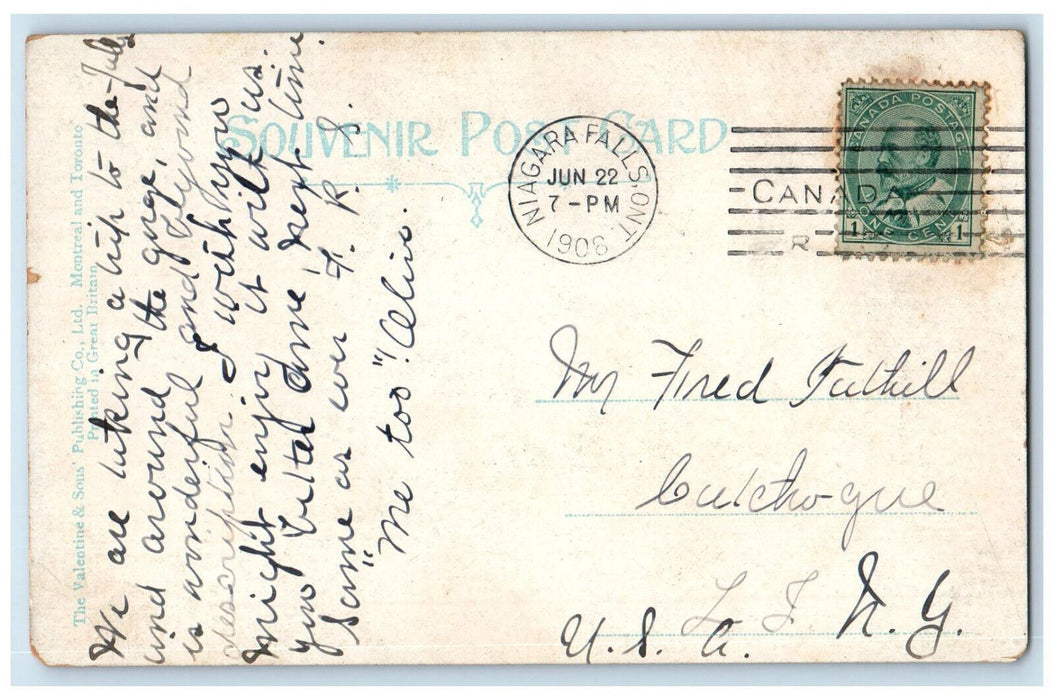 We are taking a trip to the falls
and around the gorge, and
is wonderful and beyond
description. I wish you
might enjoy it with us.
You better come next time
Same as ever F. R. S.
"Me too"! Olive.
The Valentine & Sons' Publishing Co., Ltd. Montreal and Toronto
Printed in Great Britain
SOUVENIR POST CARD
NIAGARA FALLS, ONT.
JUN 22
7 - PM
1908
CANADA
CANADA POSTAGE
1 1
ONE CENT
Mr Fred Tuthill
Cutchogue
L. I. N. Y.
U. S. A.